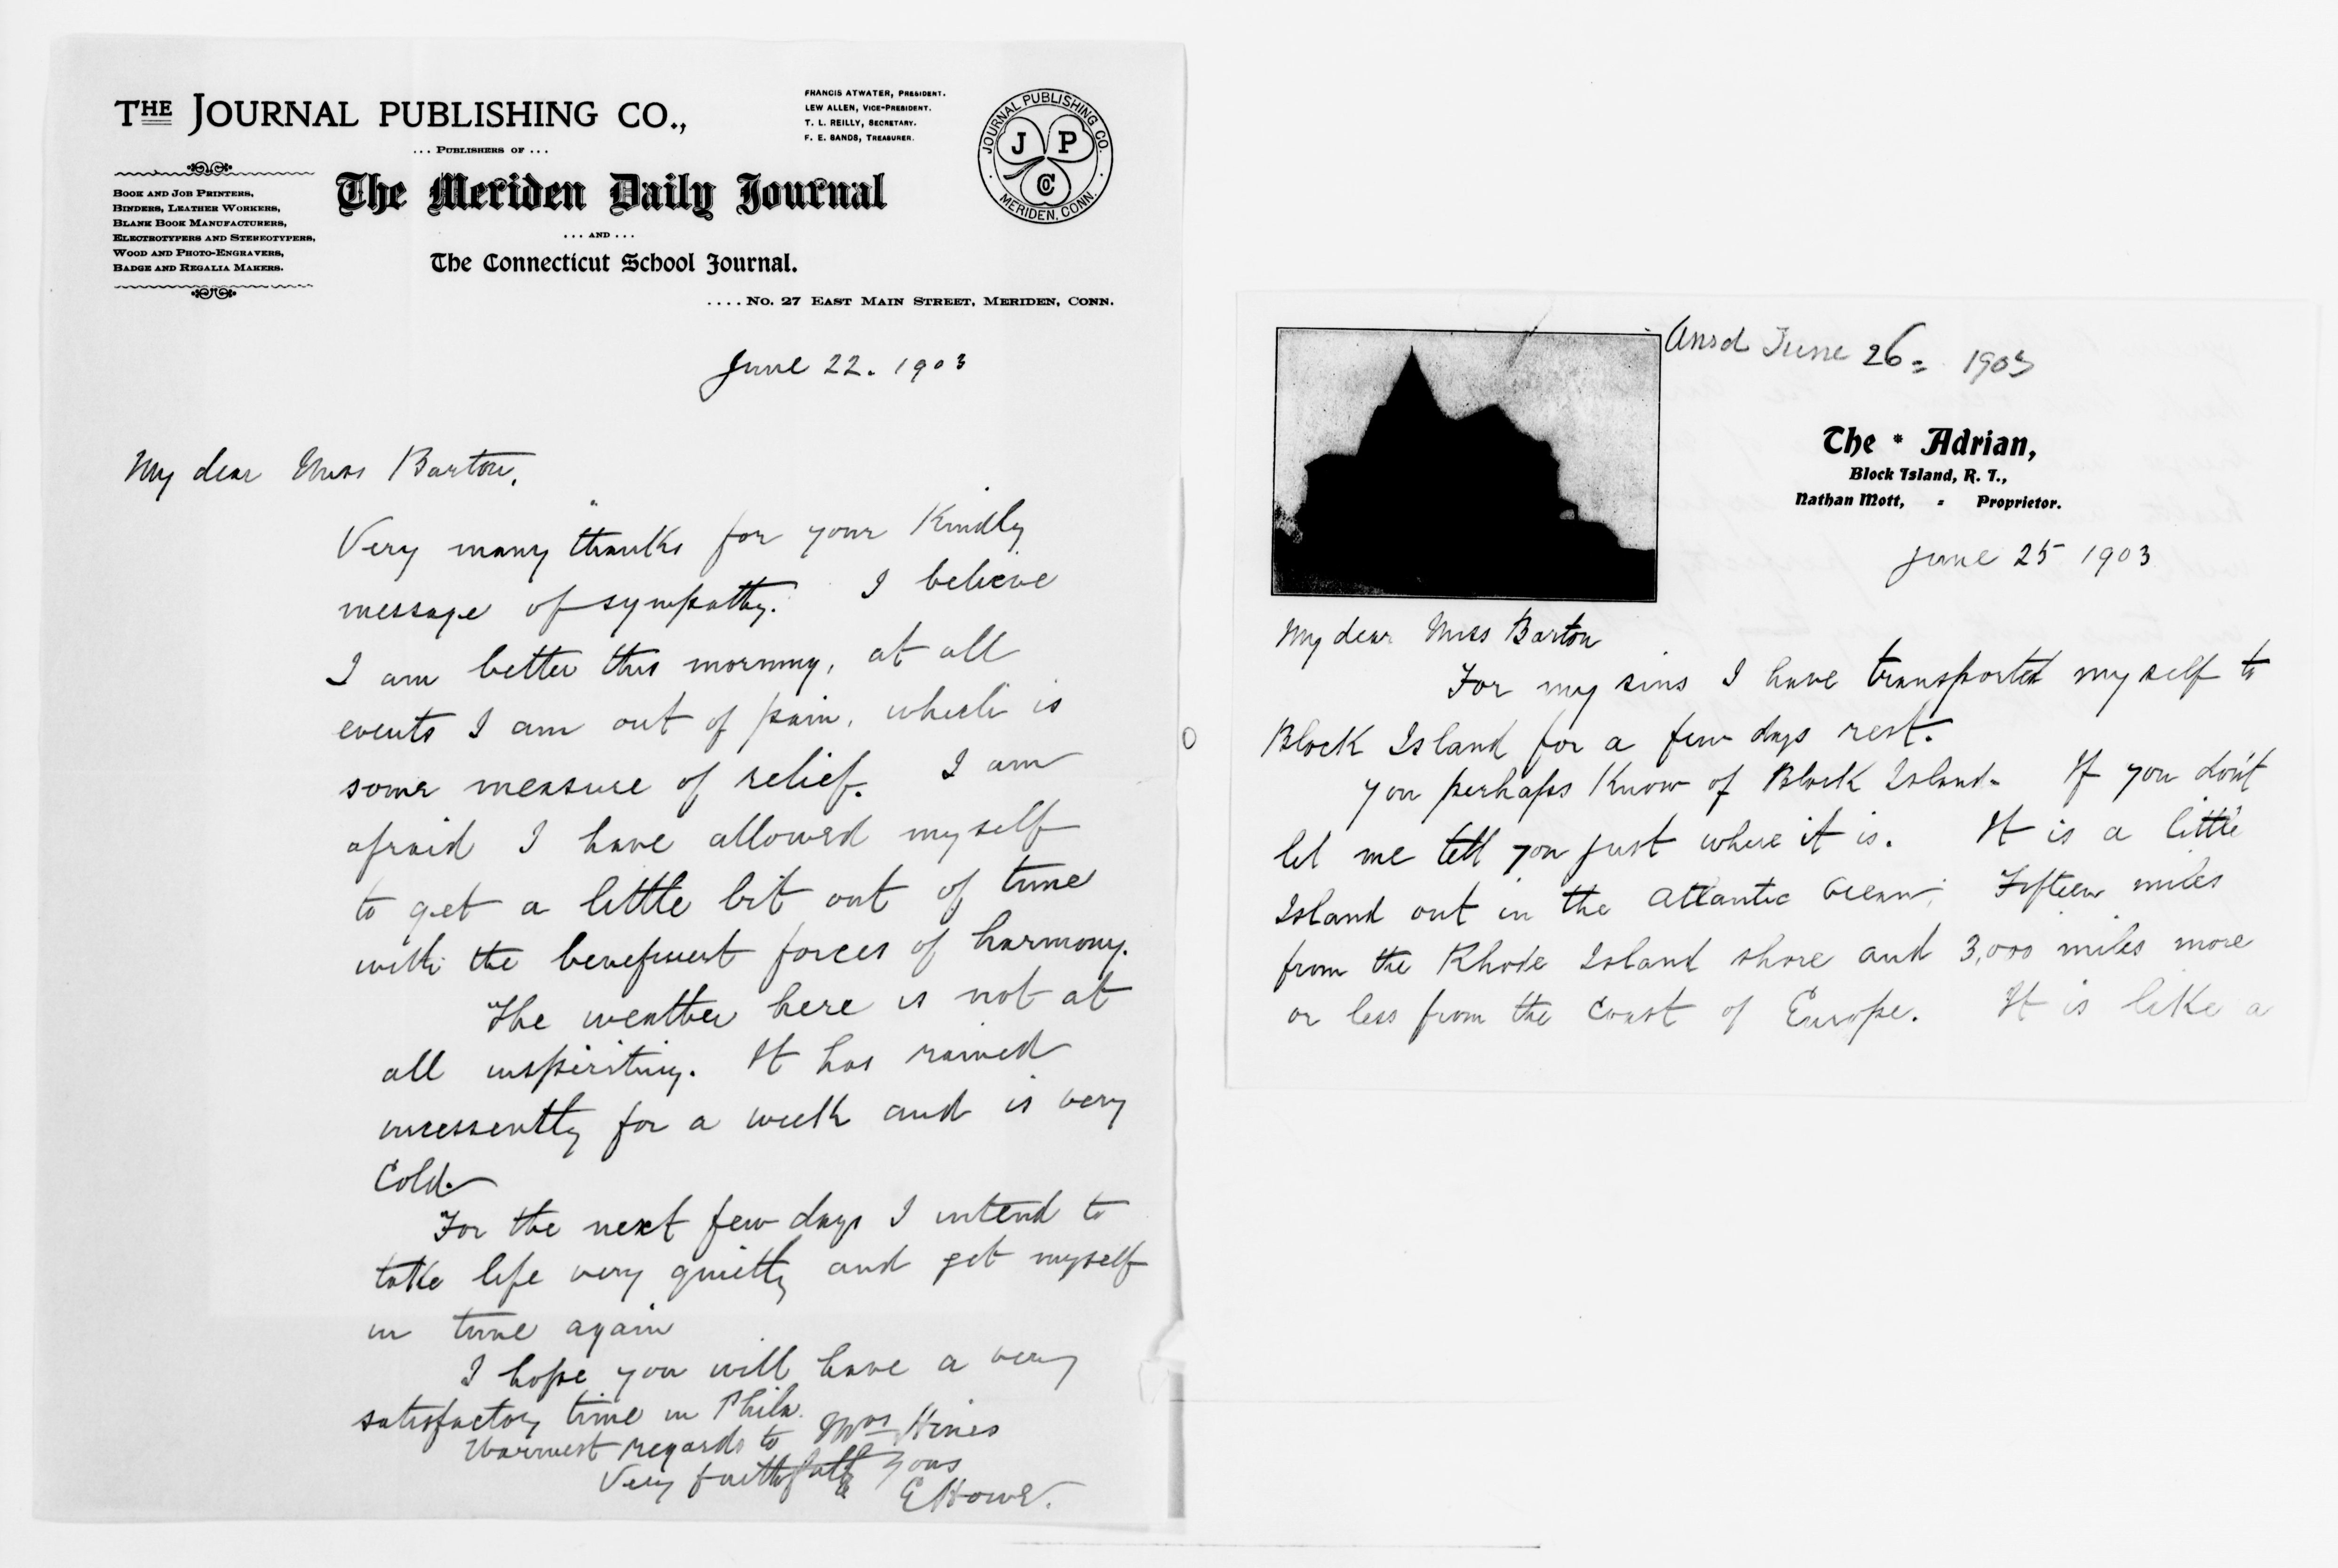 THE JOURNAL PUBLISHING CO.,
FRANCIS ATWATER, PRESIDENT.
LEW ALLEN, VICE-PRESIDENT.
T. L. REILLY, SECRETARY.
F. E. SANDS, TREASURER.
JOURNAL PUBLISHING CO.
J P
CO
MERIDEN, CONN.
... PUBLISHERS OF ...
The Meriden Daily Journal
... AND ...
The Connecticut School Journal.
BOOK AND JOB PRINTERS,
BINDERS, LEATHER WORKERS,
BLANK BOOK MANUFACTURERS,
ELECTROTYPERS AND STEREOTYPERS,
WOOD AND PHOTO-ENGRAVERS,
BADGE AND REGALIA MAKERS.
....NO. 27 EAST MAIN STREET, MERIDEN, CONN.
June 22. 1903
My dear Miss Barton,
Very many thanks for your Kindly
message of sympathy. I believe
I am better this morning, at all
events I am out of pain, which is
some measure of relief. I am
afraid I have allowed myself
to get a little bit out of tune
with the beneficent forces of harmony.
The weather here is not at
all inspiriting. It has rained
incessently for a week and is very
Cold.
For the next few days I intend to
take life very quietly and get myself
in tune again
I hope you will have a very
satisfactory time in Phila.
Warmest regards to Mrs Hines
Very faithfully yours
E Howe.
Ansd June 26= 1903
The * Adrian,
Block Island, R. I.,
Nathan Mott, - Proprietor.
June 25 1903
My dear Miss Barton
For my sins I have transported myself to
Block Island for a few days rest.
you perhaps Know of Block Island. If you don't
let me tell you just where it is. It is a little
Island out in the Atlantic Ocean; Fifteen miles
from the Rhode Island shore and 3,000 miles more
or less from the Coast of Europe. It is like a